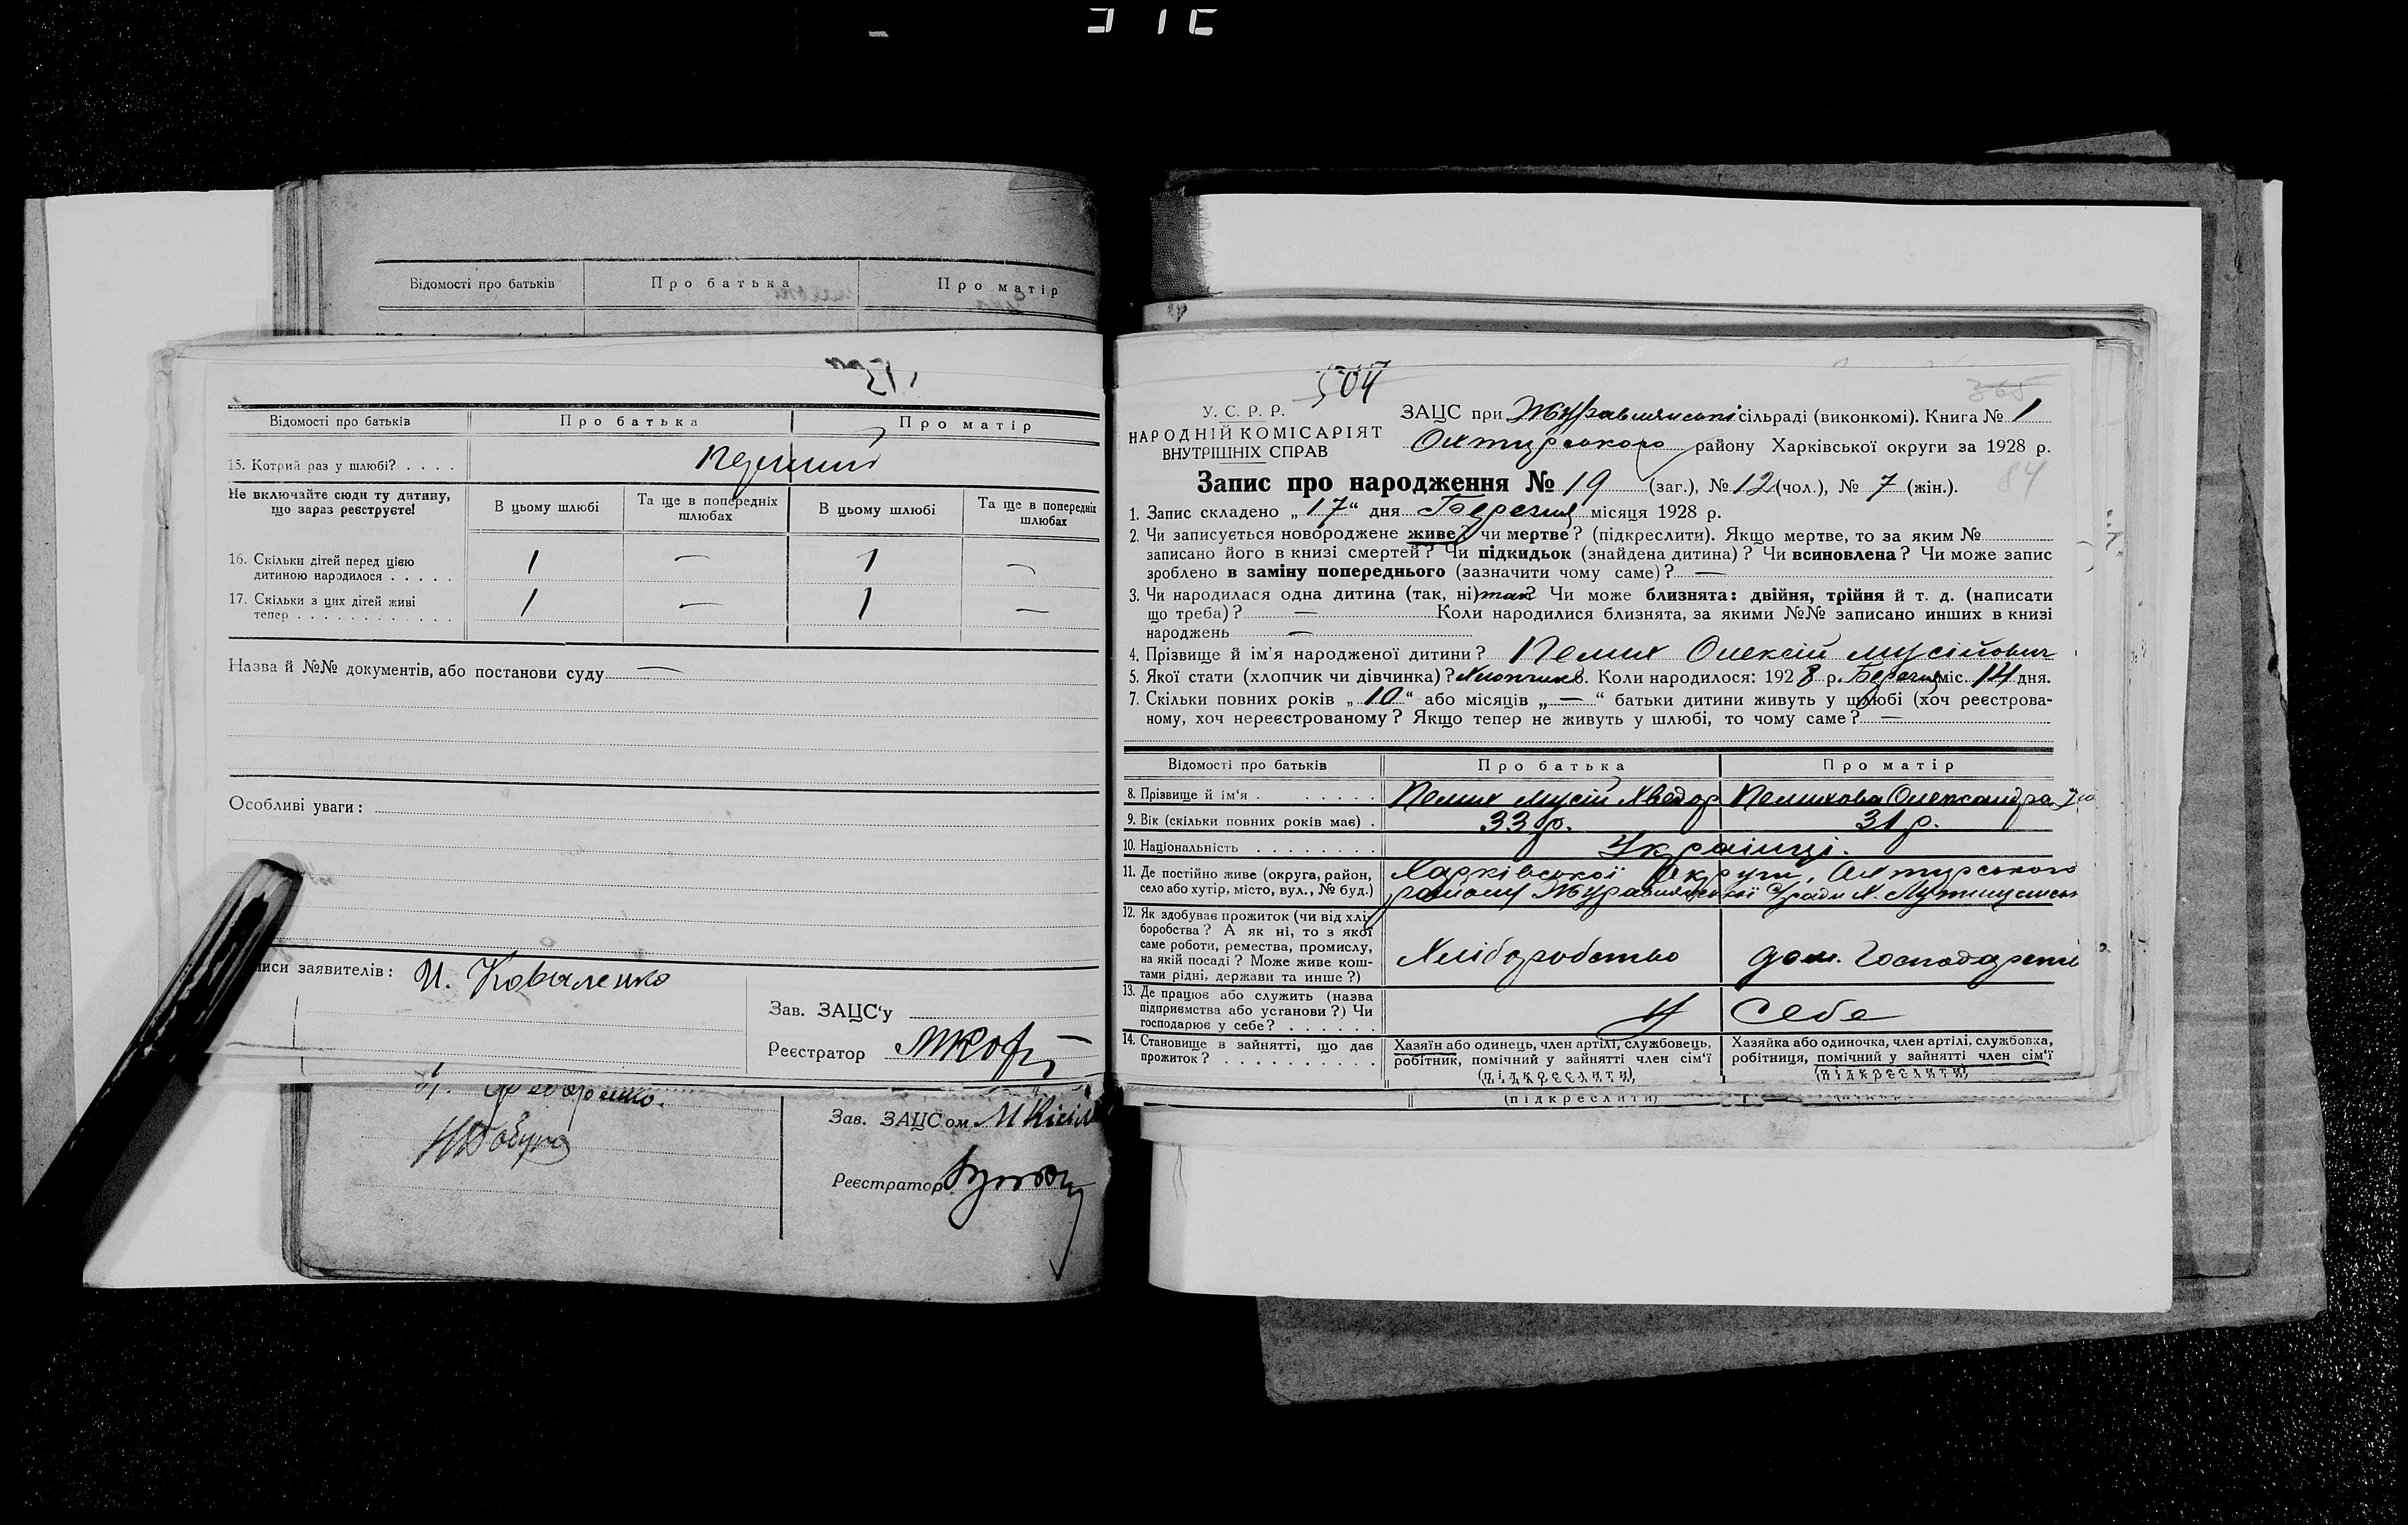 Відомості про батьків Про батька Про матір
Відомості про батьків Про батька Про матір
15. Котрий раз у шлюбі? . . . .
Не включайте сюди ту дитину, що зараз реєструєте!
В цьому шлюбі
Та ще в попередніх шлюбах
В цьому шлюбі
Та ще в попередніх шлюбах
16. Скільки дітей перед цією
дитиною народилося . . . . . 1 — 1 —
17. Скільки з цих дітей живі
тепер . . . . . . . . . . . . 1 — 1 —
Назва й №№ документів, або постанови суду —
Особливі уваги:
писи заявителів: И. Коваленко
Зав. ЗАЦС'у
Реєстратор
Зав. ЗАЦСом
Реєстратор
504
У. С. Р. Р.
НАРОДНІЙ КОМІСАРІЯТ
ВНУТРІШНІХ СПРАВ
ЗАЦС при Журавлянські сільраді (виконкомі). Книга № 1
Охтирського району Харківської округи за 1928 р.
84
Запис про народження № 19 (заг.), № 12 (чол.), № 7 (жін.).
1. Запис складено „17“ дня Березня місяця 1928 р.
2. Чи записується новороджене живе? чи мертве? (підкреслити). Якщо мертве, то за яким №
записано його в книзі смертей? Чи підкидьок (знайдена дитина)? Чи всиновлена? Чи може запис
зроблено в заміну попереднього (зазначити чому саме)? —
3. Чи народилася одна дитина (так, ні) так? Чи може близнята: двійня, трійня й т. д. (написати
що треба)? — Коли народилися близнята, за якими №№ записано инших в книзі
народжень —
4. Прізвище й ім'я народженої дитини? Пелих Олексій Мусійович
5. Якої стати (хлопчик чи дівчинка)? Хлопчик 6. Коли народилося: 1928 р. Березня міс. 14 дня.
7. Скільки повних років „10“ або місяців „—“ батьки дитини живуть у шлюбі (хоч реєстрова-
ному, хоч нереєстрованому? Якщо тепер не живуть у шлюбі, то чому саме? —
Відомості про батьків Про батька Про матір
8. Прізвище й ім'я . . . . . . . . Пелих Мусій Хведор Пелихова Олександра
9. Вік (скільки повних років має) . 33 р. 31 р.
10. Національність . . . . . . . . Українці.
11. Де постійно живе (округа, район,
село або хутір, місто, вул., № буд.)
Харківської Округи, Охтирського
району Журавлянської С/ради Х.
12. Як здобуває прожиток (чи від хлі-
боробства? А як ні, то з якої
саме роботи, ремества, промислу,
на якій посаді? Може живе кош-
тами рідні, держави та инше?)
Хліборобство
дом. Господарств
13. Де працює або служить (назва
підприємства або установи?) Чи
господарює у себе? . . . . . .
У Себе
14. Становище в зайнятті, що дає
прожиток? . . . . . . . . . .
Хазяїн або одинець, член артілі, службовець,
робітник, помічний у зайнятті член сім'ї
(підкреслити)
Хазяйка або одиночка, член артілі, службовка,
робітниця, помічний у зайнятті член сім'ї
(підкреслити)
(підкреслити)